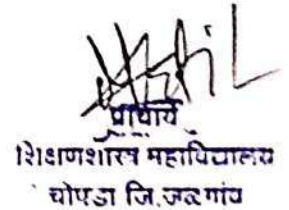 प्राचार्य
शिक्षणशास्त्र महाविद्यालय
चोपडा जि.जळगांव